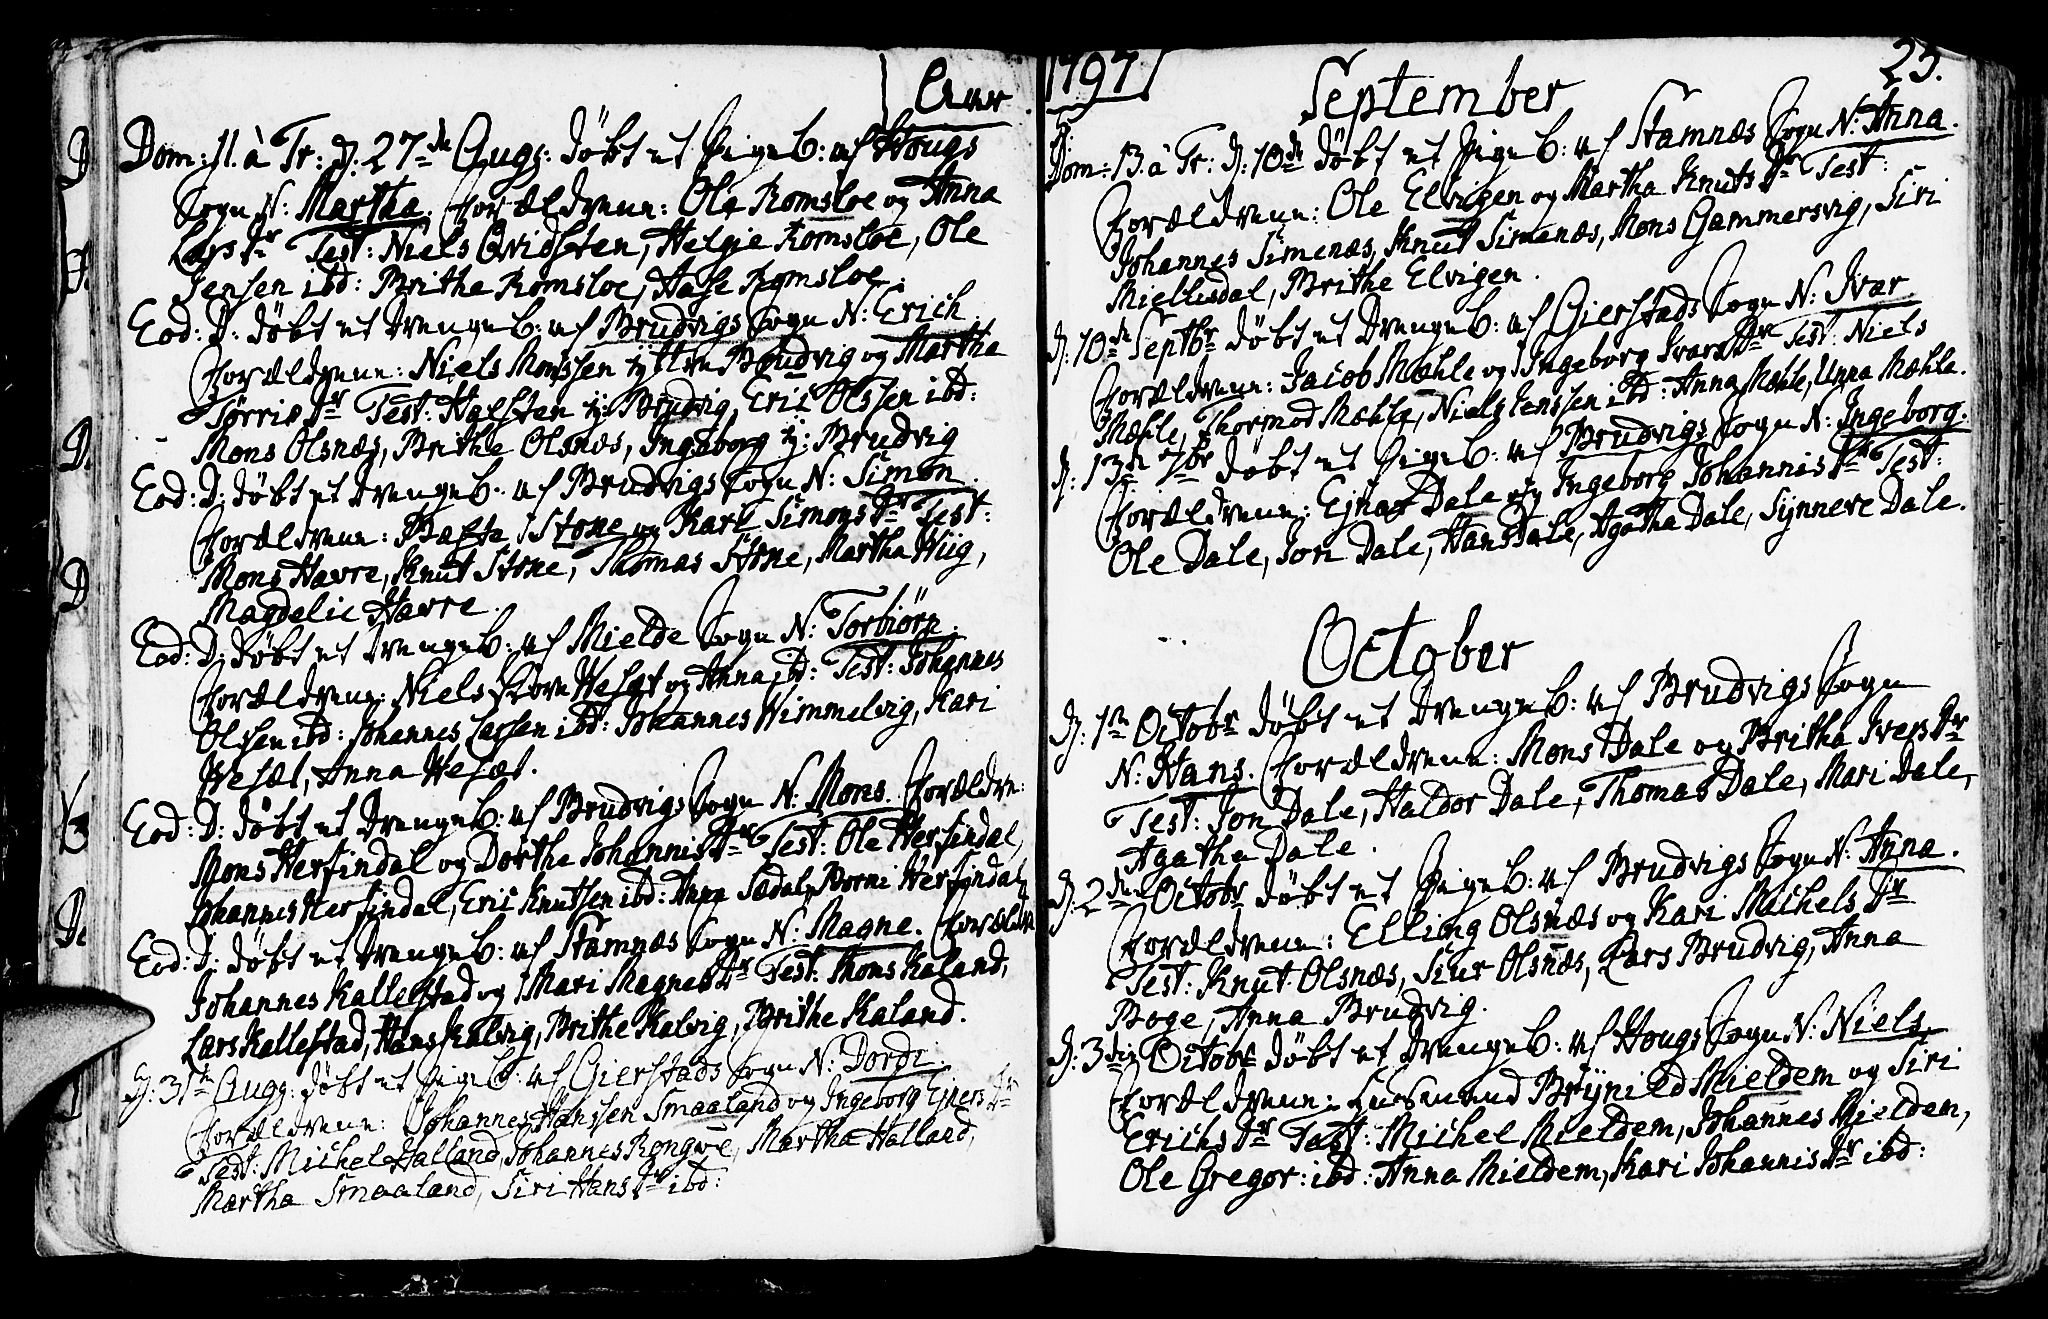 Aar
Dom: 11. à Tr: d: 27de Aug: døbt et PigeB: af Hougs
Sogn N: Martha. Forældrene: Ole Romsloe og Anna
Larsdr Test: Niels Qvidsten, Helgje Romsloe, Ole
Jensen ibd: Brithe Romsloe, Aase Romsloe.
Eod: D: døbt et DrengeB: af Brudvigs Sogn N: Erich.
Forældrene: Niels Monssen Brudvig og Martha
Tørrisdr Test: Halsten Brudvig, Eric Olssen ibd:
Mons Olsnæs, Brithe Olsnæs, Ingeborg Brudvig
Eod: D: døbt et DrengeB: af Brudvigs Sogn N: Simon.
Forældrene: Stone og Kari Simonsdr Test:
Mons Havre, Knut Stone, Thomas Stone, Martha Wiig,
Magdelie Havre.
Eod: D: døbt et DrengeB: af Mielde Sogn N: Torbiørn.
Forældrene: Niels Wesæt og Anna ibd: Test: Johannes
Olssen ibd: Johannes Larsen ibd: Johannes Wimmelvig, Kari
Wesæt, Anna Wesæt.
Eod: D: døbt et DrengeB: af Brudvigs Sogn N: Mons. Forældre:
Mons Herfindal og Dorthe Johannisdr Test: Ole Herfindal,
Johannes Herfindal, Eric Knutsen ibd: Anna Sædal, Borni Herfindal
Eod: D: døbt et DrengeB: af Stamnæs Sogn N: Magne. Forældre
Johannes Kallestad og Mari Magnesdr Test: Mons Kaland,
Lars Kallestad, Hans Kalvig, Brithe Kalvig, Brithe Kaland.
D: 31te Aug: døbt et PigeB: af Gierstads Sogn N: Dordi.
Forældrene: Johannes Hanssen Smaaland og Ingeborg Ejnersdr
Test: Michel Halland, Johannes Rongwe, Martha Halland,
Martha Smaaland, Siri Hansdr ibd:
1797
September
23.
Dom: 13. à Tr: d: 10de døbt et PigeB: af Stamnæs Sogn N: Anna.
Forældrene: Ole Elvigen og Martha Knutsdr Test:
Johannes Simenæs, Knut Simenæs, Mons Gammersvig, Siri
Miellisdal, Brithe Elvigen.
D: 10de Septbr døbt et DrengeB: af Gierstads Sogn N: Ivar
Forældrene: Jacob Mæhle og Ingeborg Ivarsdr Test: Niels
Mæhle, Thormod Mæhle, Niels Jenssen ibd: Anna Mæhle, Unna Mæhle.
D: 13de 7br døbt et PigeB: af Brudvigs Sogn N: Ingeborg.
Forældrene: Ejnar Dale og Ingeborg Johannisdr Test:
Ole Dale, Jon Dale, Hans Dale, Agatha Dale, Synneve Dale.
October
D: 1te Octobr døbt et DrengeB: af Brudvigs Sogn
N: Hans. Forældrene: Mons Dale og Britha Iversdr
Test: Jon Dale, Haldor Dale, Thomas Dale, Mari Dale,
Agatha Dale.
D: 2den Octobr døbt et PigeB: af Brudvigs Sogn N: Anna.
Forældrene: Elling Olsnæs og Kari Michelsdr
Test: Knut Olsnæs, Siur Olsnæs, Lars Brudvig, Anna
Boge, Anna Brudvig.
D: 3die Octobr døbt et DrengeB: af Hougs Sogn N: Niels.
Forældrene: Brynild Mieldem og Siri
Erichsdr Test: Michel Mieldem, Johannes Mieldem,
Ole Gregor: ibd: Anna Mieldem, Kari Johannisdr ibd: